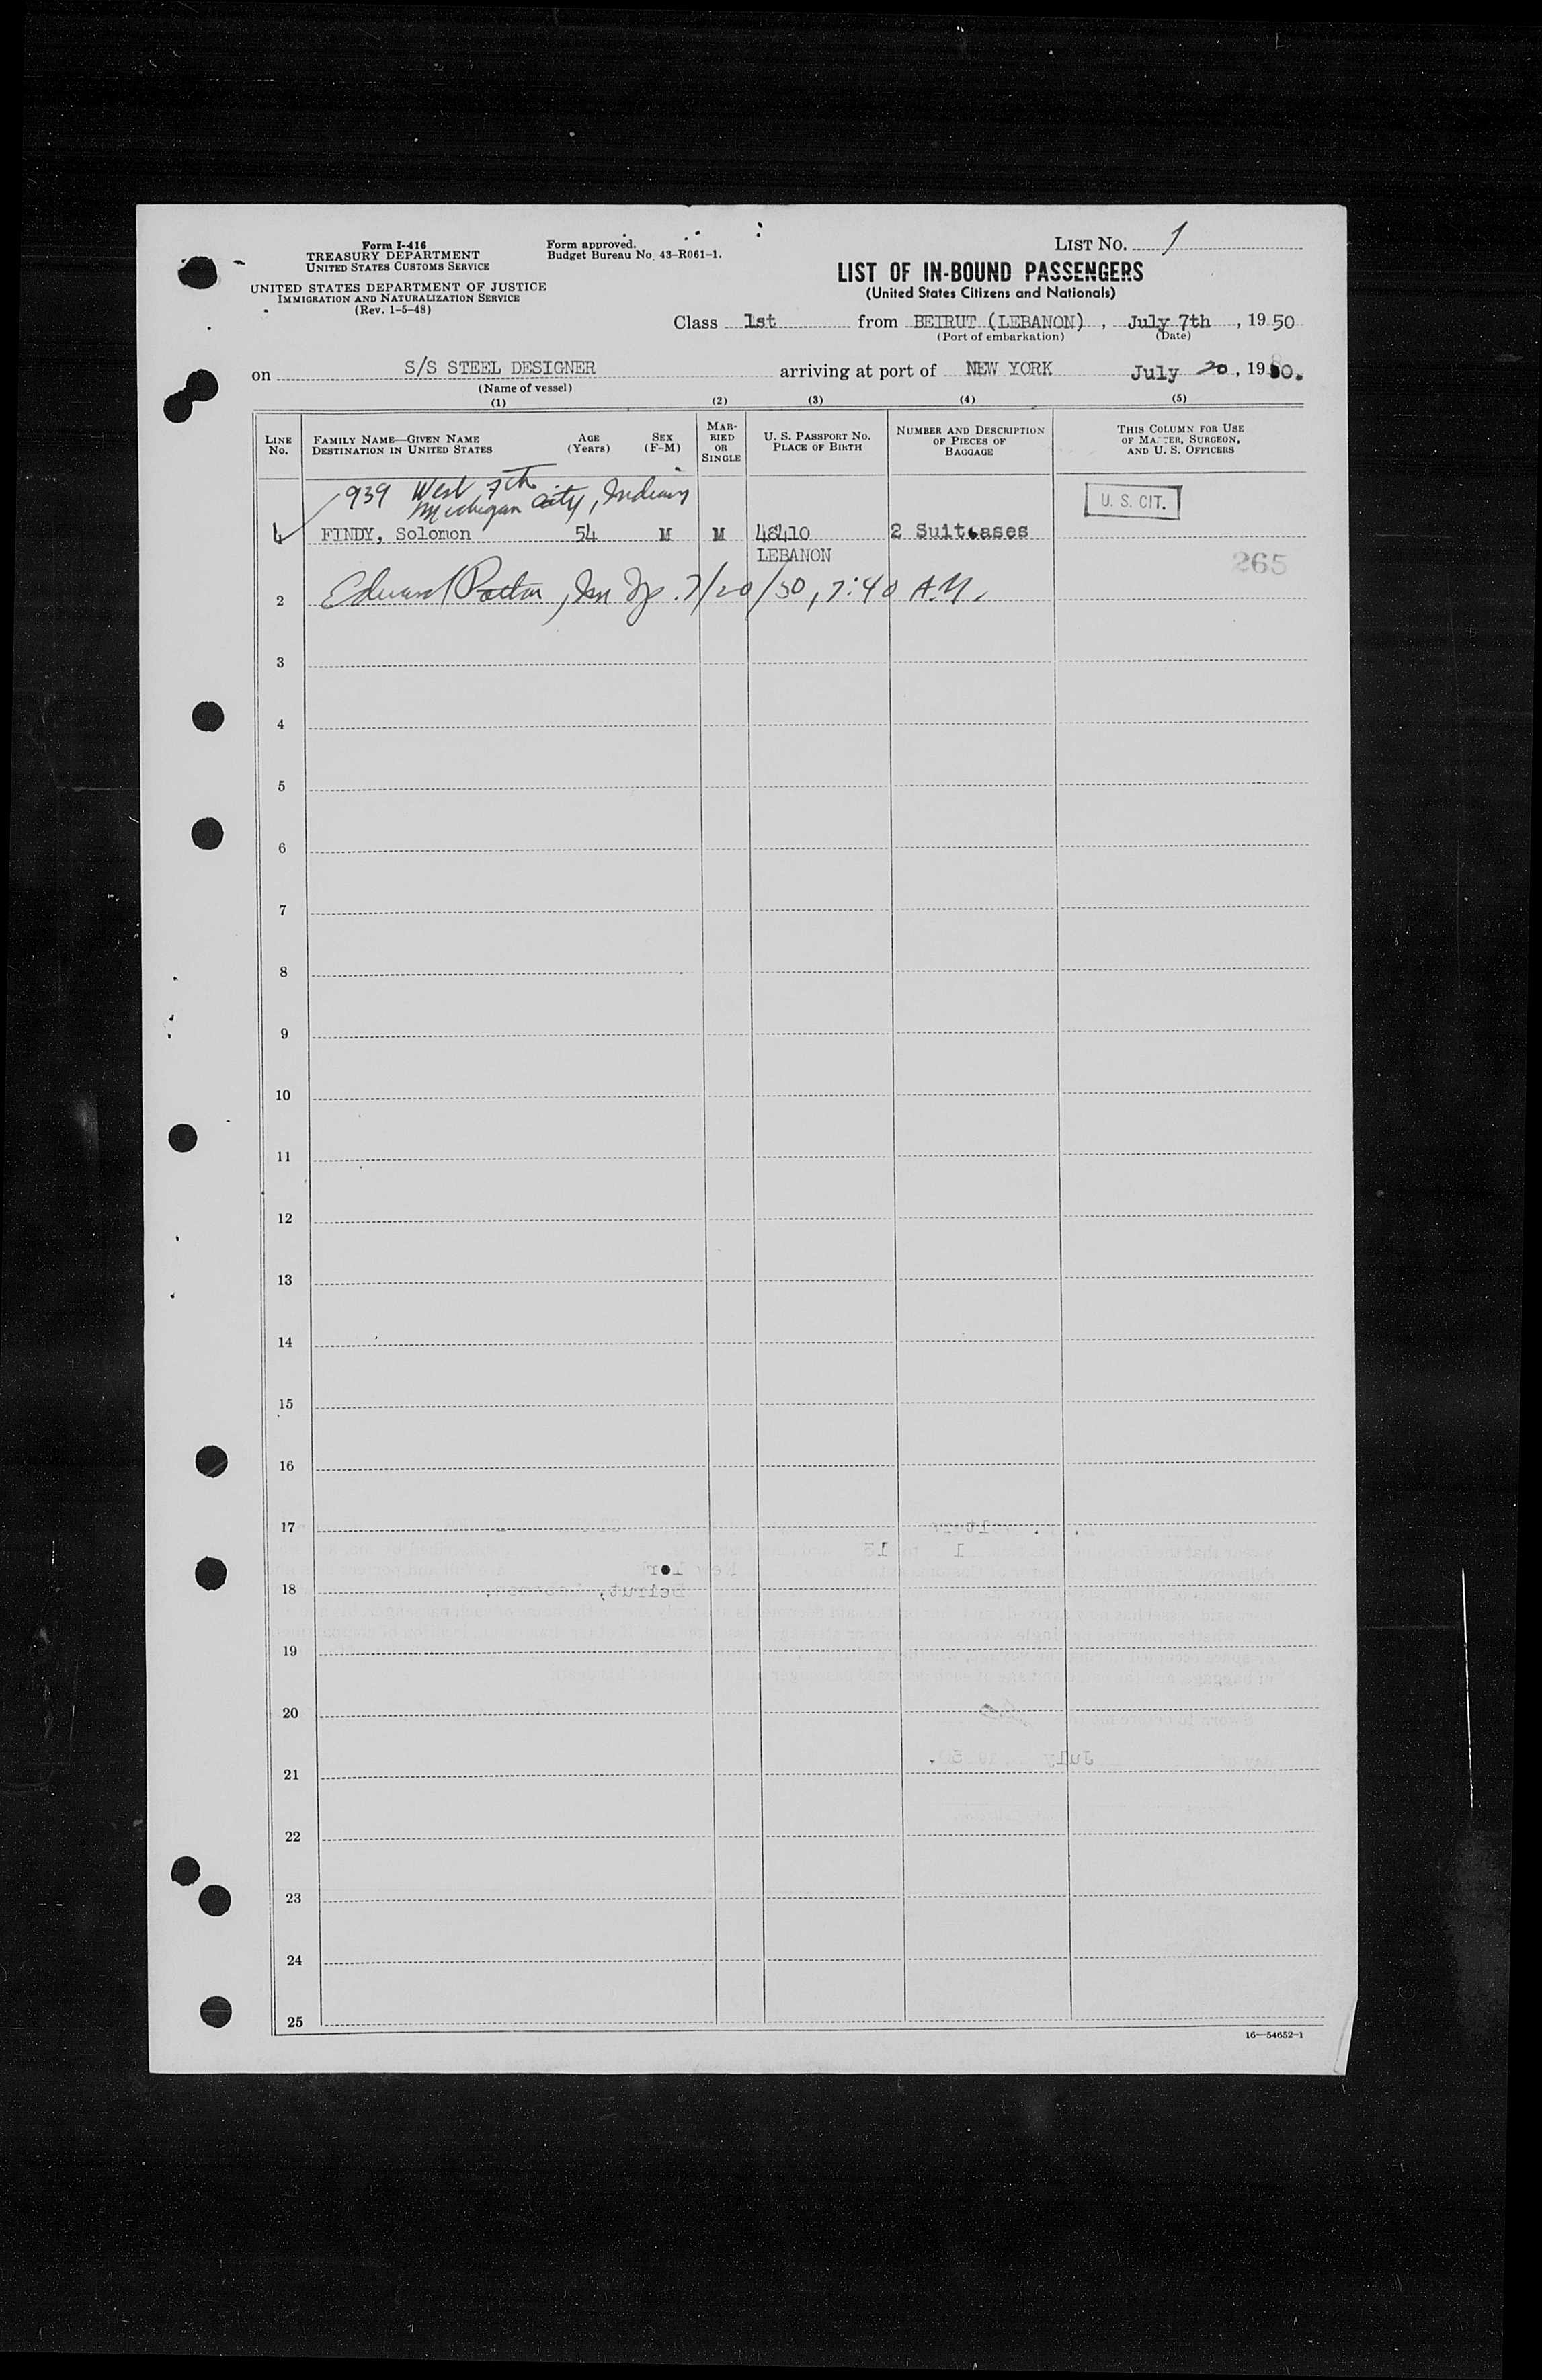 Form I-416
TREASURY DEPARTMENT
UNITED STATES CUSTOMS SERVICE
UNITED STATES DEPARTMENT OF JUSTICE
IMMIGRATION AND NATURALIZATION SERVICE
(Rev. 1-5-48)
Form approved.
Budget Bureau No. 43-R061-1.
LIST NO. 1
LIST OF IN-BOUND PASSENGERS
(United States Citizens and Nationals)
Class 1st from BEIRUT (LEBANON), July 7th, 1950
(Port of embarkation) (Date)
on S/S STEEL DESIGNER arriving at port of NEW YORK July 20, 1950.
(Name of vessel)
(1) (2) (3) (4) (5)
LINE NO.
FAMILY NAME—GIVEN NAME
DESTINATION IN UNITED STATES
AGE (Years)
SEX (F-M)
MARRIED OR SINGLE
U. S. PASSPORT NO.
PLACE OF BIRTH
NUMBER AND DESCRIPTION OF PIECES OF BAGGAGE
THIS COLUMN FOR USE OF MASTER, SURGEON, AND U. S. OFFICERS
939 West 7th
Michigan City, Indiana
U. S. CIT.
FINDY, Solomon 54 M M 48410 2 Suitcases
LEBANON
265
2 Edward 7/20/50, 7:40 A.M.
3
4
5
6
7
8
9
10
11
12
13
14
15
16
17
18
19
20
21
22
23
24
25
16—54652-1